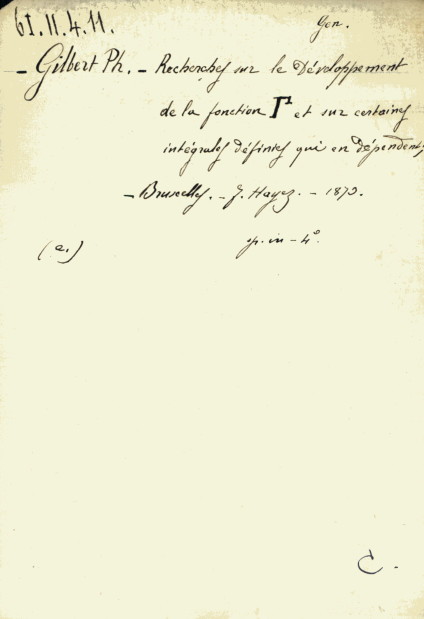 61.II.4.11.
Gen.
- Gilbert Ph. - Recherches sur le Développement
de la fonction Γ et sur certaines
intégrales définies qui en dépendent;
- Bruxelles. - F. Hayez. - 1873.
gr. in - 4º.
(a.)
C.